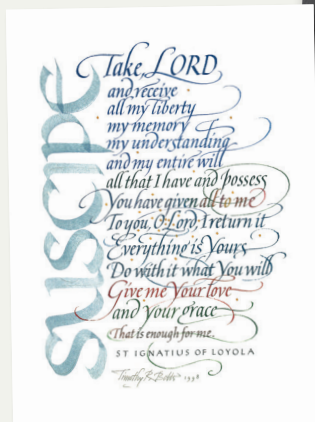 SUSCIPE
Take, LORD
and receive
all my liberty
my memory
my understanding
and my entire will
all that I have and possess
You have given all to me
To you, O Lord, I return it
Everything is Yours
Do with it what You will
Give me Your love
and Your grace
That is enough for me.
ST IGNATIUS OF LOYOLA
Timothy R. Botts 1998